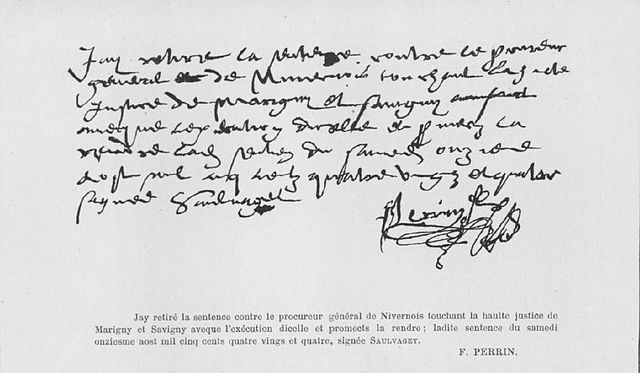 Jay retire la sentence contre le procureur
general de Nivernois touchant la haulte
Justice de Marigny et Savigny
avecque lexecution dicelle et promectz la
rendre ladite sentence du samedi onziesme
aost mil cinq centz quatre vingz et quatre
signee Saulvaget
Perrin
Jay retiré la sentence contre le procureur général de Nivernois touchant la haulte justice de
Marigny et Savigny aveque l'exécution dicelle et promects la rendre ; ladite sentence du samedi
onziesme aost mil cinq cents quatre vings et quatre, signée SAULVAGET.
F. PERRIN.